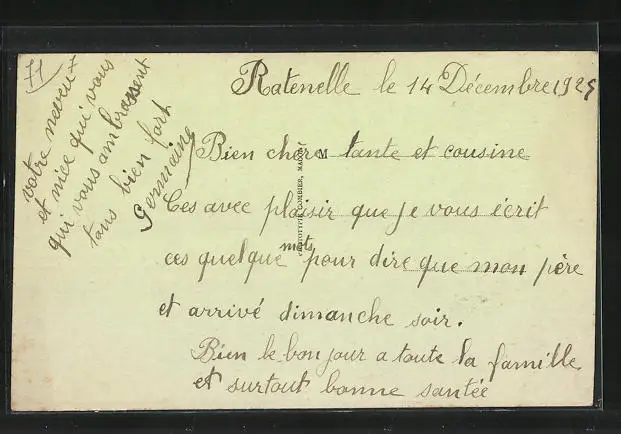 Ratenelle le 14 Décembre 1925
Bien chere tante et cousine
Ces avec plaisir que je vous écrit
ces quelque mots pour dire que mon père
et arrivé dimanche soir.
Bien le bonjour a toute la famille
et surtout bonne santée
votre neveux
et niece qui vous
qui vous ambrassent
tous bien fort
Germaine
COMBIER, MACON